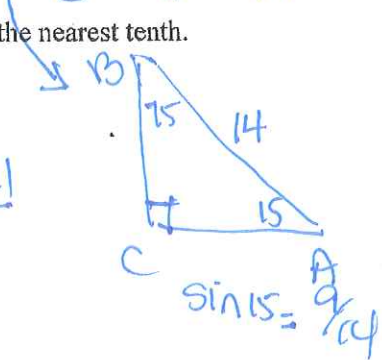 the nearest tenth.
B
75
14
15
C
A
sin 15 = a/14